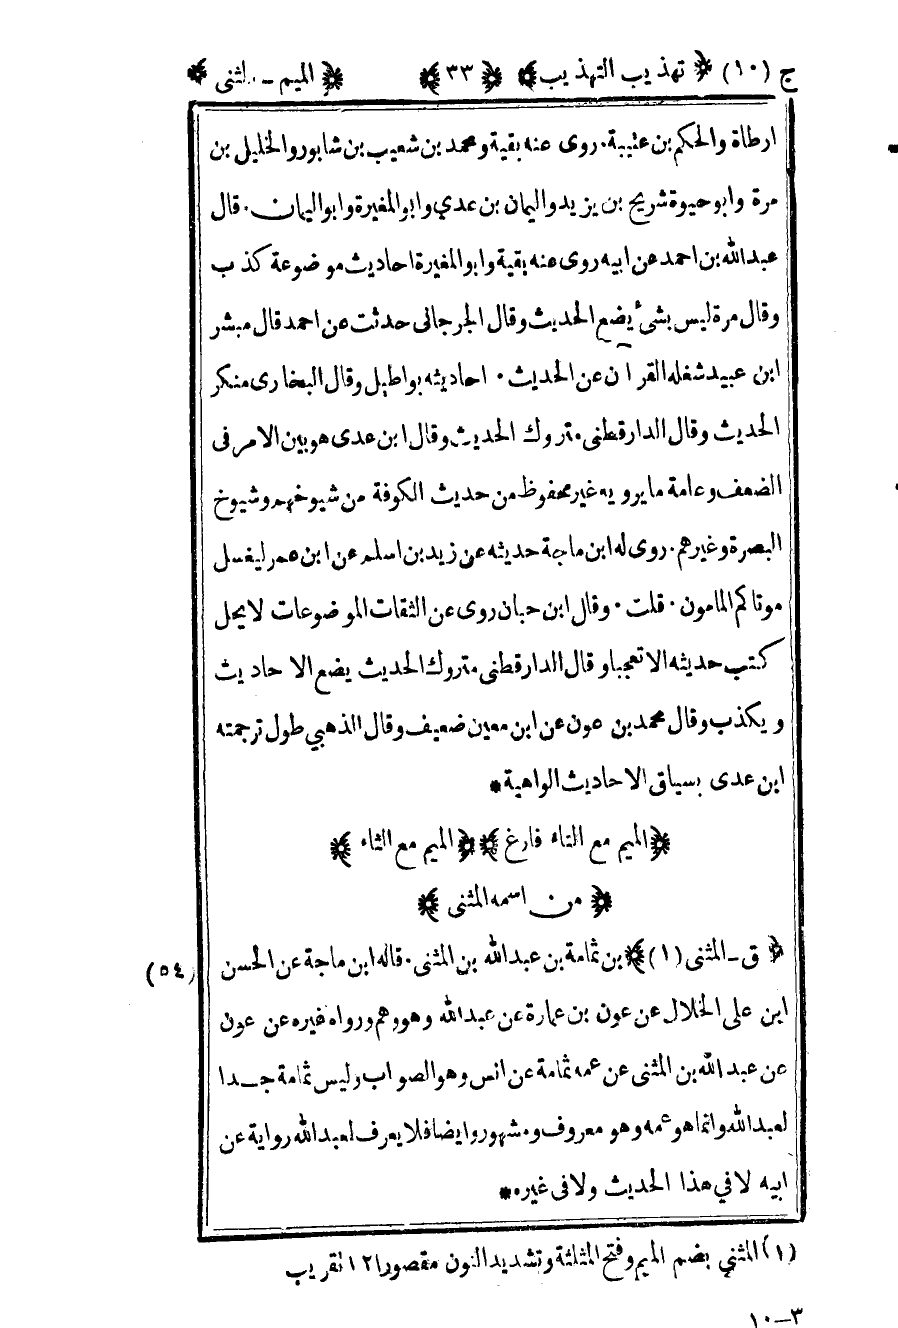 ج (١٠) ﴿ تهذيب التهذيب ﴾ ﴿ ٣٣ ﴾ ﴿ الميم ـ المثنى ﴾
ارطاة والحكم بن عتيبة. روى عنه بقية ومحمد بن شعيب بن شابور والخليل بن
مرة وابو حيوة شريح بن يزيد واليمان بن عدي وابو المغيرة وابو اليمان. قال
عبد الله بن احمد عن ابيه روى عنه بقية وابو المغيرة احاديث موضوعة كذب
وقال مرة ليس بشئ يضع الحديث وقال الجرجانى حدثت عن احمد قال مبشر
ابن عبيد شغله القرآن عن الحديث. احاديثه بواطيل وقال البخارى منكر
الحديث وقال الدارقطنى متروك الحديث وقال ابن عدى هو بين الامر فى
الضعف وعامة ما يرويه غير محفوظ من حديث الكوفة من شيوخهم وشيوخ
البصرة وغيرهم. روى له ابن ماجة حديثه عن زيد بن اسلم عن ابن عمر ليغسل
موتاكم المامون. قلت. وقال ابن حبان روى عن الثقات الموضوعات لا يحل
كتب حديثه الا تعجبا وقال الدارقطنى متروك الحديث يضع الاحاديث
ويكذب وقال محمد بن عون عن ابن معين ضعيف وقال الذهبي طول ترجمته
ابن عدى بسياق الاحاديث الواهية *
﴿ الميم مع التاء فارغ ﴾ ﴿ الميم مع الثاء ﴾
﴿ من اسمه المثنى ﴾
﴿ ق ـ المثنى (١) ﴾ بن ثمامة بن عبد الله بن المثنى. قاله ابن ماجة عن الحسن (٥٤)
ابن على الخلال عن عون بن عمارة عن عبد الله وهو وهم ورواه غيره عن عون
عن عبد الله بن المثنى عن عمه ثمامة عن انس وهو الصواب وليس ثمامة جدا
لعبد الله وانما هو عمه وهو معروف ومشهور وايضا فلا يعرف لعبد الله رواية عن
ابيه لا في هذا الحديث ولا فى غيره *
(١) المثني بضم الميم وفتح المثلثة وتشديد النون مقصورا ١٢ تقريب
٣ـ١٠